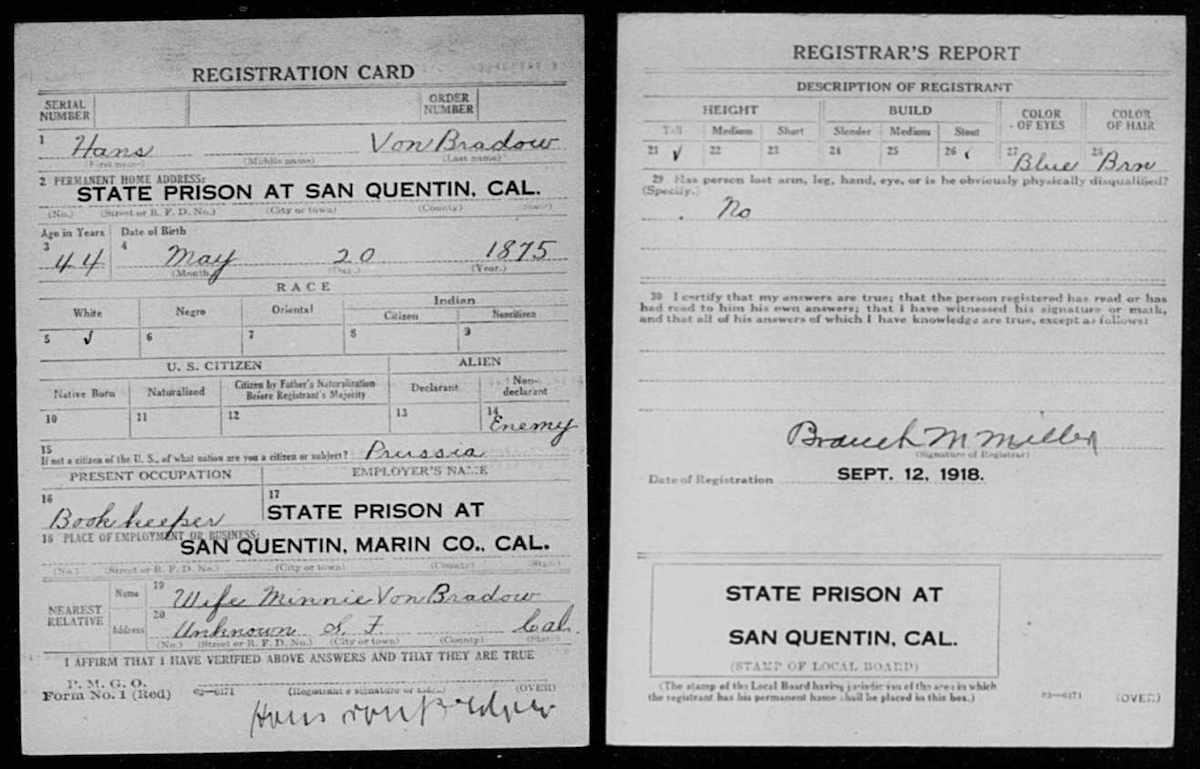 REGISTRATION CARD
SERIAL NUMBER
ORDER NUMBER
1 Hans Von Bradow
(First name) (Middle name) (Last name)
2 PERMANENT HOME ADDRESS:
STATE PRISON AT SAN QUENTIN, CAL.
(No.) (Street or R. F. D. No.) (City or town) (County) (State)
Age in Years Date of Birth
3 44 4 May 20 1875
(Month) (Day.) (Year.)
RACE
White Negro Oriental Indian
Citizen Noncitizen
5 ✓ 6 7 8 9
U. S. CITIZEN ALIEN
Native Born Naturalized Citizen by Father's Naturalization Before Registrant's Majority Declarant Non-declarant
10 11 12 13 14 Enemy
15
If not a citizen of the U. S., of what nation are you a citizen or subject? Prussia
PRESENT OCCUPATION EMPLOYER'S NAME
16 Book keeper 17 STATE PRISON AT
18 PLACE OF EMPLOYMENT OR BUSINESS:
SAN QUENTIN, MARIN CO., CAL.
(No.) (Street or R. F. D. No.) (City or town) (County) (State)
NEAREST RELATIVE
Name 19 Wife Minnie Von Bradow
Address 20 Unknown S. F. Cal.
(No.) (Street or R. F. D. No.) (City or town) (County) (State)
I AFFIRM THAT I HAVE VERIFIED ABOVE ANSWERS AND THAT THEY ARE TRUE
P. M. G. O.
Form No. 1 (Red) 03—6171 (Registrant's signature or mark) (OVER)
Hans von
REGISTRAR'S REPORT
DESCRIPTION OF REGISTRANT
HEIGHT BUILD COLOR OF EYES COLOR OF HAIR
Tall Medium Short Slender Medium Stout
21 ✓ 22 23 24 25 26 27 Blue 28 Brn
29 Has person lost arm, leg, hand, eye, or is he obviously physically disqualified?
(Specify.)
No
30 I certify that my answers are true; that the person registered has read or has
had read to him his own answers; that I have witnessed his signature or mark,
and that all of his answers of which I have knowledge are true, except as follows:
Branch M Miller
(Signature of Registrar)
Date of Registration SEPT. 12, 1918.
STATE PRISON AT
SAN QUENTIN, CAL.
(STAMP OF LOCAL BOARD)
(The stamp of the Local Board having jurisdiction of the area in which
the registrant has his permanent home shall be placed in this box.)
03—6171 (OVER)